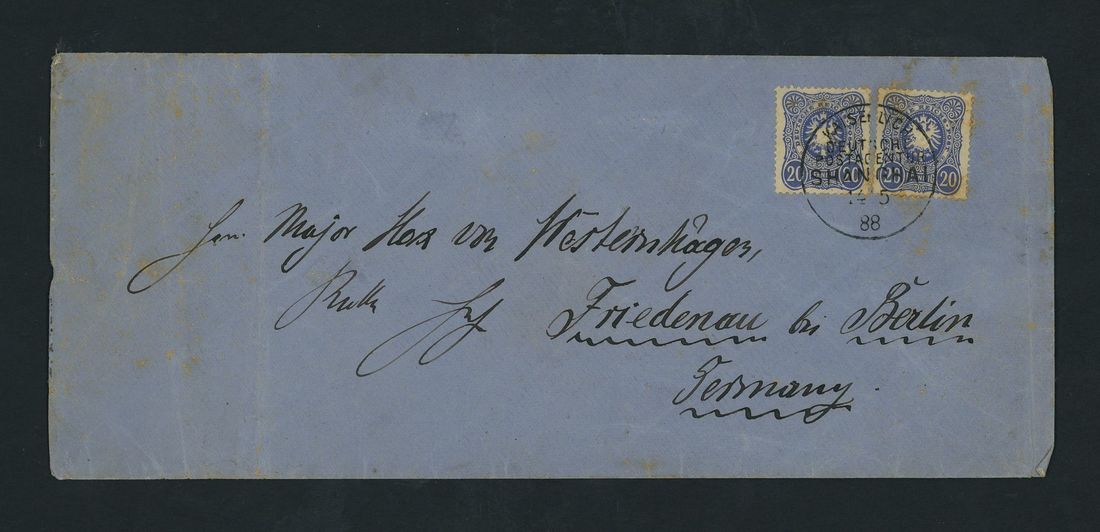 KAISERLICH
DEUTSCHE
POSTAGENTUR
SHANGHAI
14 5
88
20 20 20 20
Herrn Major Max von Westernhagen,
Friedenau bei Berlin
Germany.